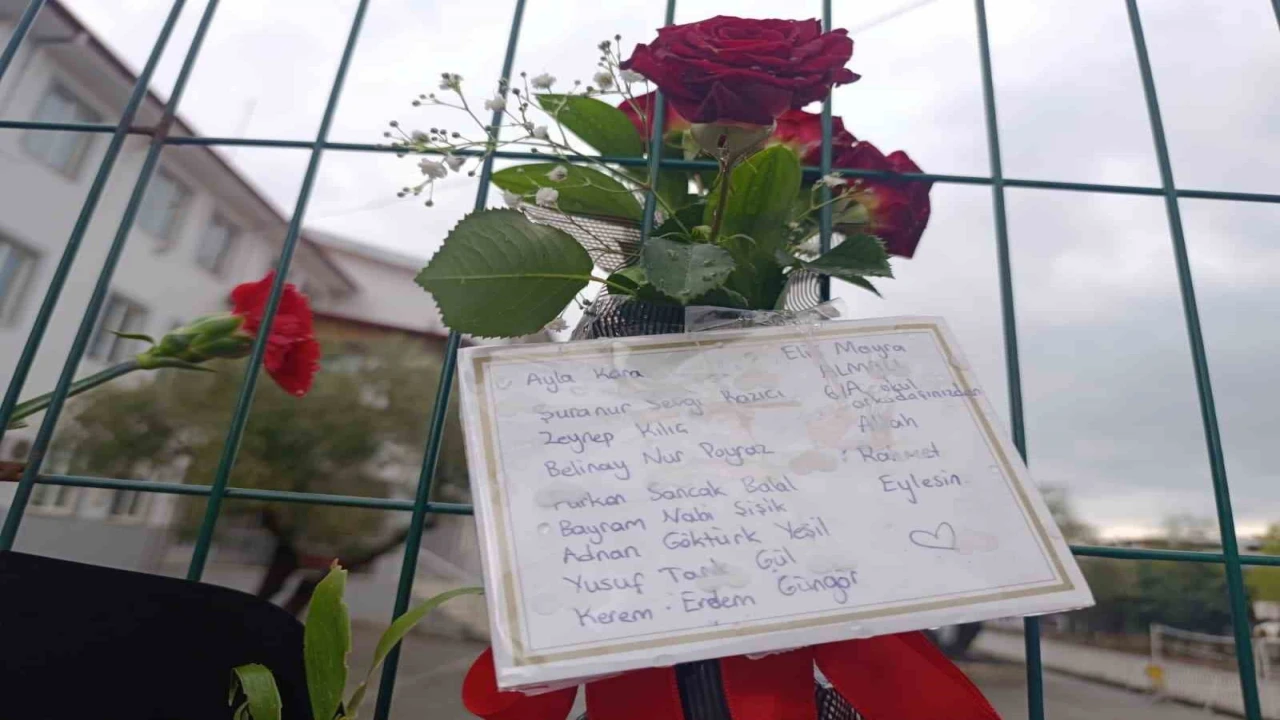 Ayla Kara
Şuranur Sevgi Kazıcı
Zeynep Kılıç
Belinay Nur Poyraz
Furkan Sancak Balal
Bayram Nabi Şişik
Adnan Göktürk Yeşil
Yusuf Tarık Gül
Kerem Erdem Güngör
Mayra
6/A okul
arkadaşınızdan
Allah
Rahmet
Eylesin.